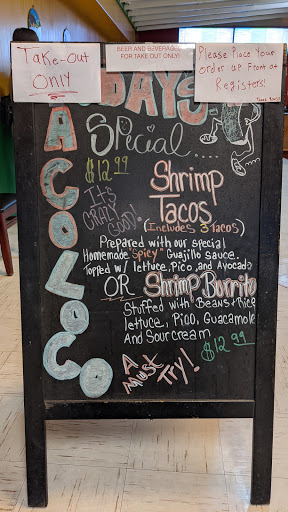 Take-Out
ONLY
BEER AND BEVERAGES
FOR TAKE OUT ONLY!
Please Place Your
order up Front at
Registers!
TACO LOCO
DAYS
Special....
$12.99
IT'S
CRAZY
GOOD!
Shrimp
Tacos
(Includes 3 tacos)
Prepared with our special
Homemade "Spicy" Guajillo Sauce.
Topped w/ lettuce, Pico, and Avocado
OR Shrimp Burrito
Stuffed with Beans + Rice
lettuce, Pico, Guacamole
And Sour Cream
$12.99
A
MUST
TRY!